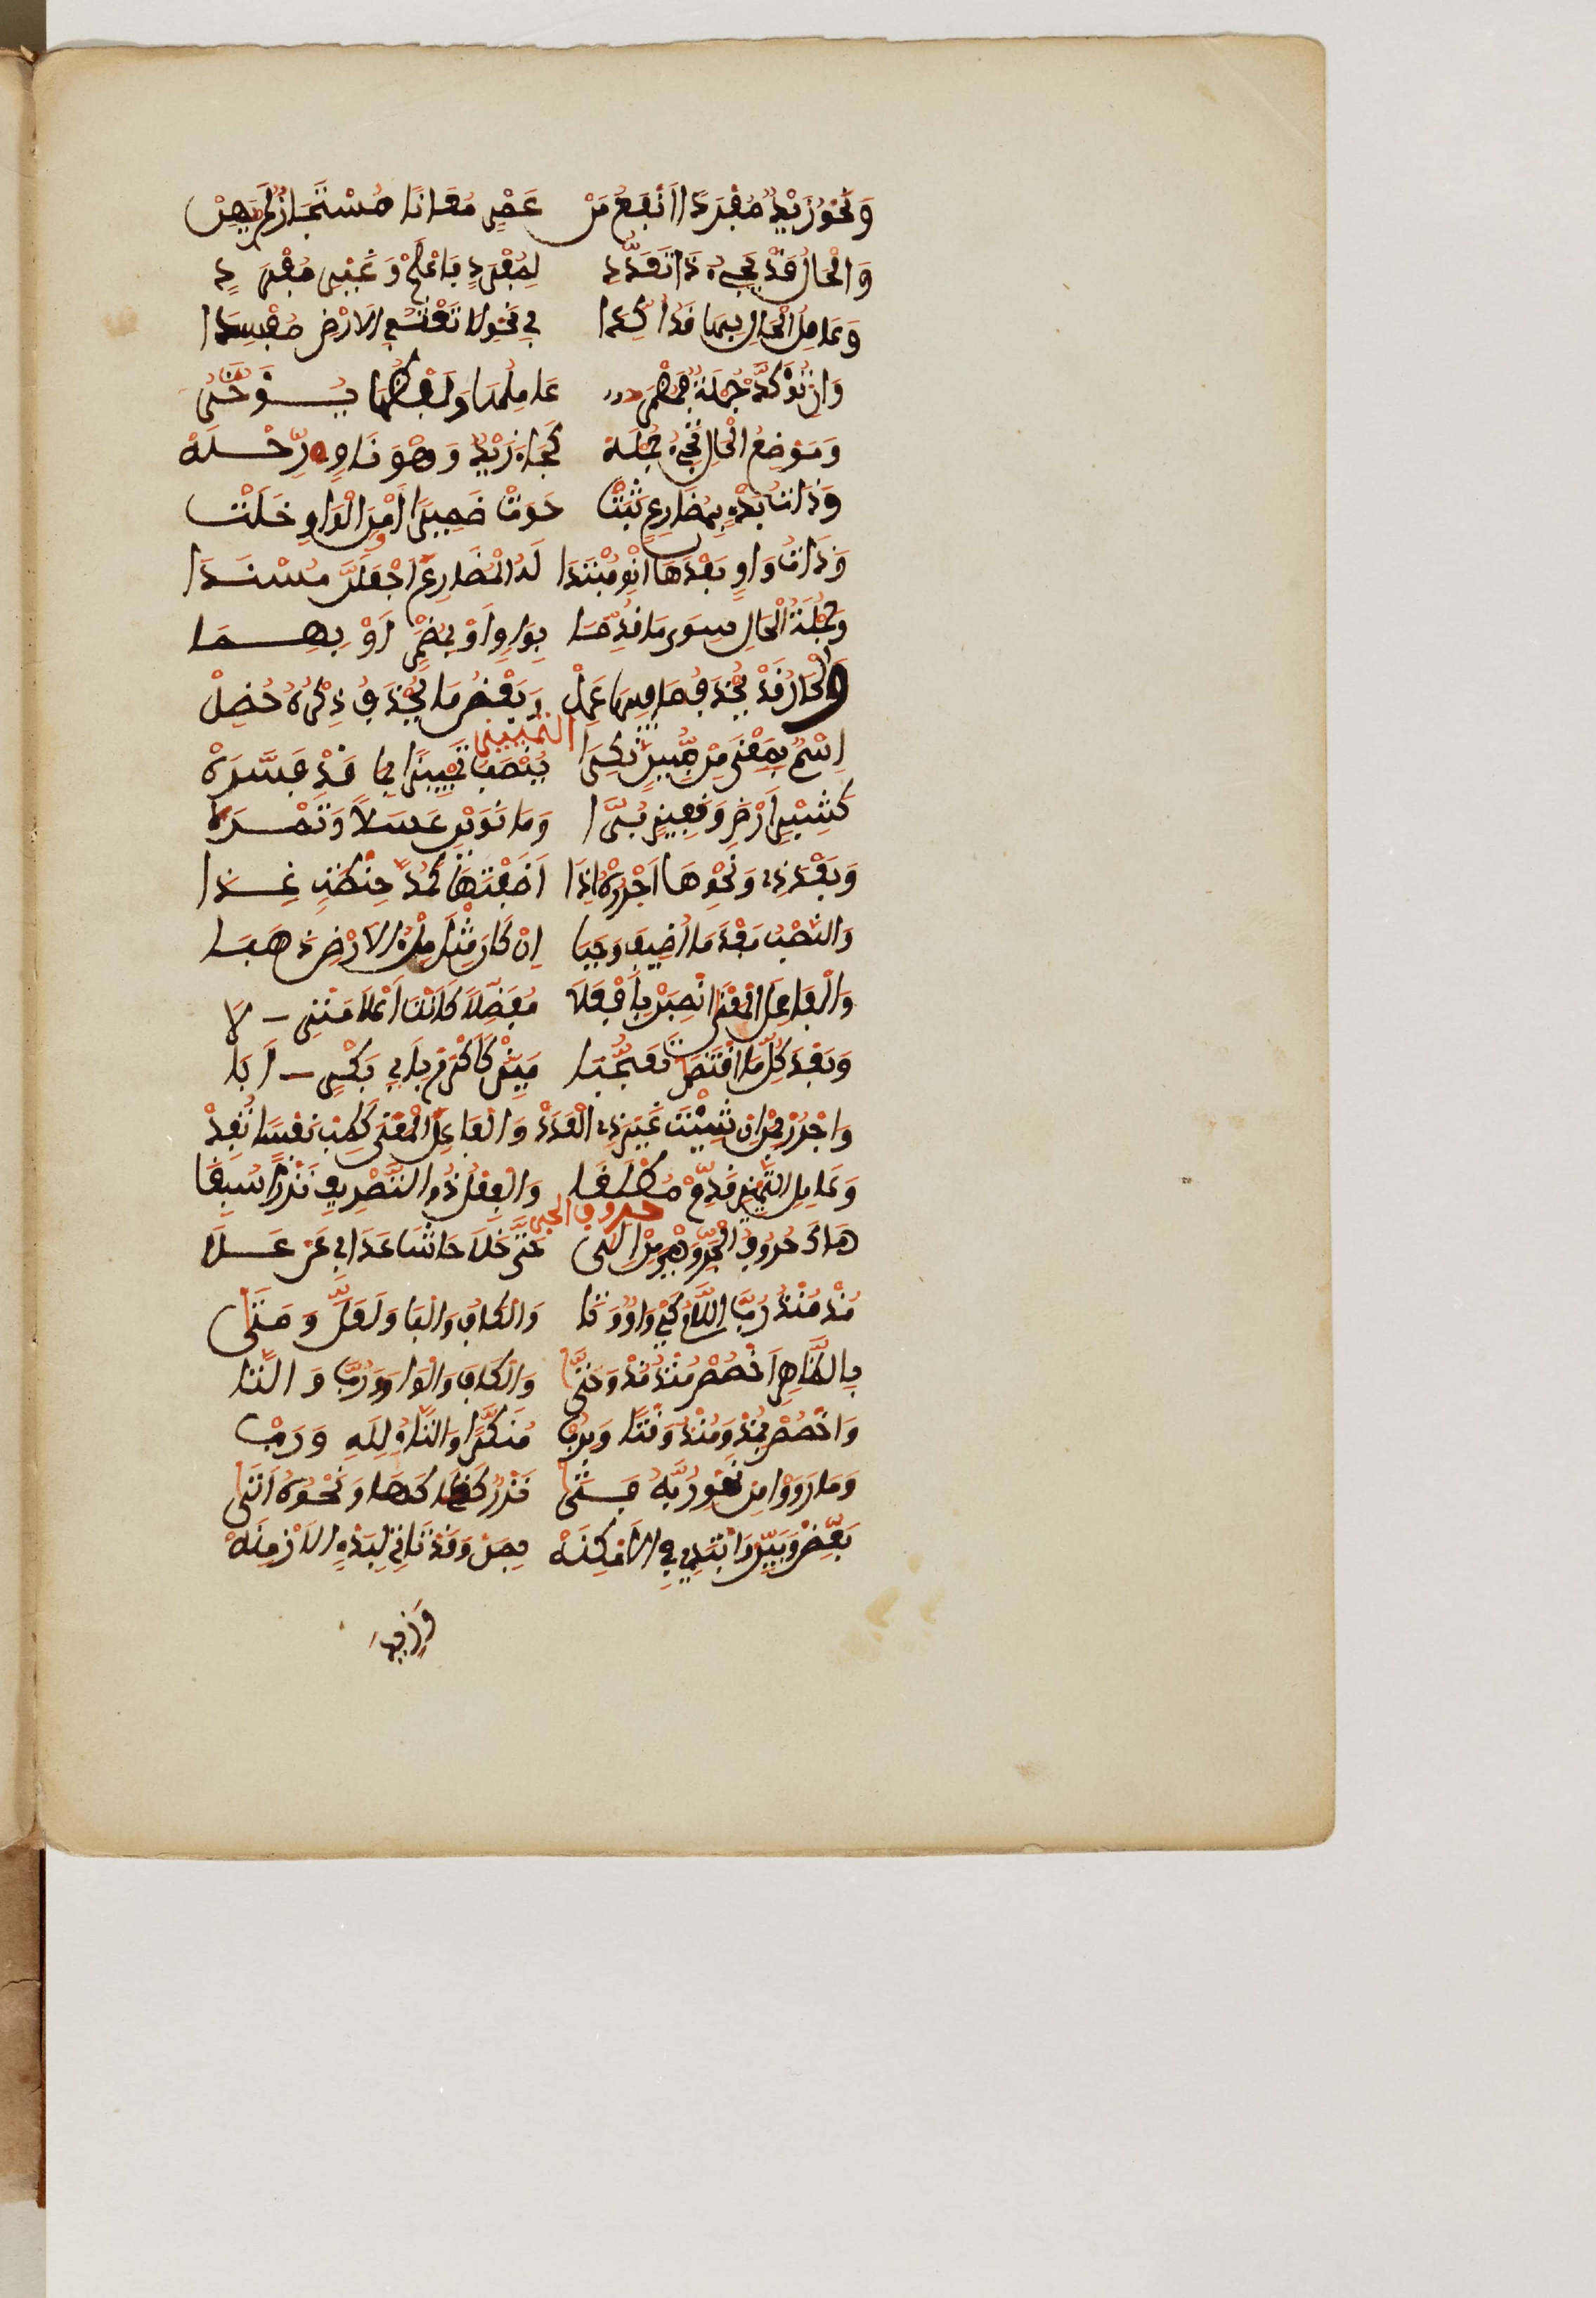 وَنَحْوُ زَيْدٌ مُفْرَدًا أَنْفَعُ مِنْ عَمْرٍو مُعَانًا مُسْتَجَازٌ لَنْ يَهِنْ
وَالْحَالُ قَدْ يَجِيءُ ذَا تَعَدُّدِ لِمُفْرَدٍ فَاعْلَمْ وَغَيْرِ مُفْرَدِ
وَعَامِلُ الْحَالِ بِهَا قَدْ أُكِّدَا فِي نَحْوِ لَا تَعْثَ فِي الْأَرْضِ مُفْسِدَا
وَإِنْ تُؤَكِّدْ جُمْلَةً فَمُضْمَرُ عَامِلُهَا وَلَفْظُهَا يُؤَخَّرُ
وَمَوْضِعُ الْحَالِ تَجِيءُ جُمْلَهْ كَجَاءَ زَيْدٌ وَهْوَ نَاوٍ رِحْلَهْ
وَذَاتُ بَدْءٍ بِمُضَارِعٍ ثَبَتْ حَوَتْ ضَمِيرًا وَمِنَ الْوَاوِ خَلَتْ
وَذَاتُ وَاوٍ بَعْدَهَا انْوِ مُبْتَدَا لَهُ الْمُضَارِعَ اجْعَلَنَّ مُسْنَدَا
وَجُمْلَةُ الْحَالِ سِوَى مَا قُدِّمَا بِوَاوٍ أَوْ بِمُضْمَرٍ أَوْ بِهِمَا
وَالْحَالُ قَدْ يُحْذَفُ مَا فِيهَا عَمِلْ وَبَعْضُ مَا يُحْذَفُ ذِكْرُهُ حُظِلْ
التمييز
اِسْمٌ بِمَعْنَى مِنْ مُبِينٌ نَكِرَهْ يُنْصَبُ تَمْيِيزًا بِمَا قَدْ فَسَّرَهْ
كَشِبْرٍ أَرْضًا وَقَفِيزٍ بُرَّا وَمَنَوَيْنِ عَسَلًا وَتَمْرَا
وَبَعْدَ ذِي وَنَحْوِهَا اجْرُرْهُ إِذَا أَضَفْتَهَا كَمُدُّ حِنْطَةٍ غِذَا
وَالنَّصْبُ بَعْدَ مَا أُضِيفَ وَجَبَا إِنْ كَانَ مِثْلَ مِلْءُ الْأَرْضِ ذَهَبَا
وَالْفَاعِلَ الْمَعْنَى انْصِبَنْ بِأَفْعَلَا مُفَضِّلًا كَأَنْتَ أَعْلَا مَنْزِلَا
وَبَعْدَ كُلِّ مَا اقْتَضَى تَعَجُّبَا مَيِّزْ كَأَكْرِمْ بِأَبِي بَكْرٍ أَبَا
وَاجْرُرْ بِمِنْ إِنْ شِئْتَ غَيْرَ ذِي الْعَدَدْ وَالْفَاعِلِ الْمَعْنَى كَطِبْ نَفْسًا تُفَدْ
وَعَامِلَ التَّمْيِيزِ قَدِّمْ مُطْلَقَا وَالْفِعْلُ ذُو التَّصْرِيفِ نَزْرًا سُبِقَا
حروف الجر
هَاكَ حُرُوفَ الْجَرِّ وَهْيَ مِنْ إِلَى حَتَّى خَلَا حَاشَا عَدَا فِي عَنْ عَلَى
مُذْ مُنْذُ رُبَّ اللَّامُ كَيْ وَاوٌ وَتَا وَالْكَافُ وَالْبَا وَلَعَلَّ وَمَتَى
بِالظَّاهِرِ اخْصُصْ مُنْذُ مُذْ وَحَتَّى وَالْكَافَ وَالْوَاوَ وَرُبَّ وَالتَّا
وَاخْصُصْ بِمُذْ وَمُنْذُ وَقْتًا وَبِرُبْ مُنَكَّرًا وَالتَّاءُ لِلَّهِ وَرَبْ
وَمَا رَوَوْا مِنْ نَحْوِ رُبَّهُ فَتَى نَزْرٌ كَذَا كَهَا وَنَحْوُهُ أَتَى
بَعِّضْ وَبَيِّنْ وَابْتَدِئْ فِي الْأَمْكِنَهْ بِمِنْ وَقَدْ تَأْتِي لِبَدْءِ الْأَزْمِنَهْ
وَزِيدَ